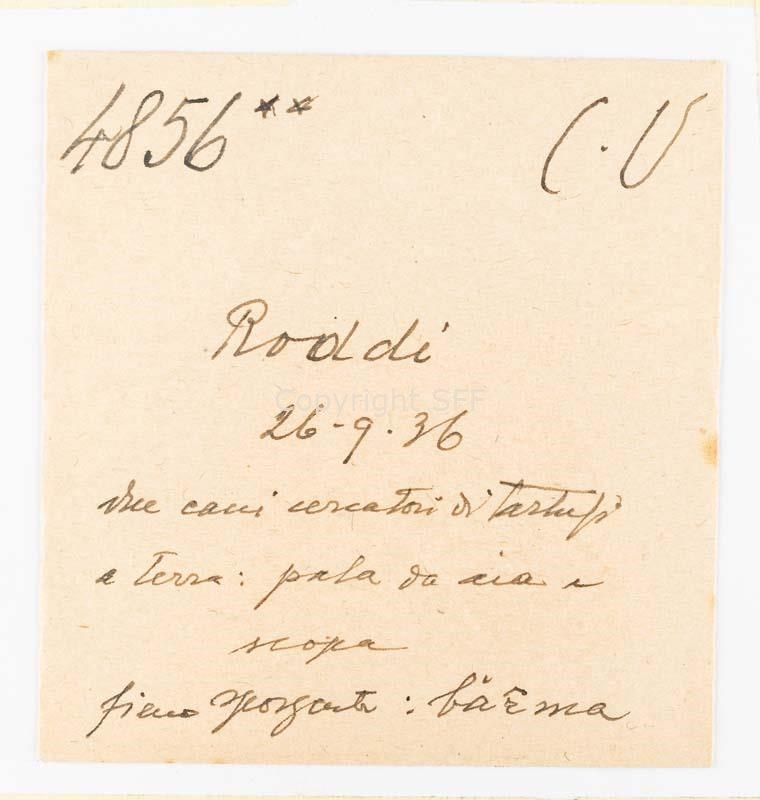 4856** C.V
Roddi
Copyright SFF
26-9-36
due cani cercatori di tartufi
a terra: pala da aia e
scopa
fieno sporgente: bärma